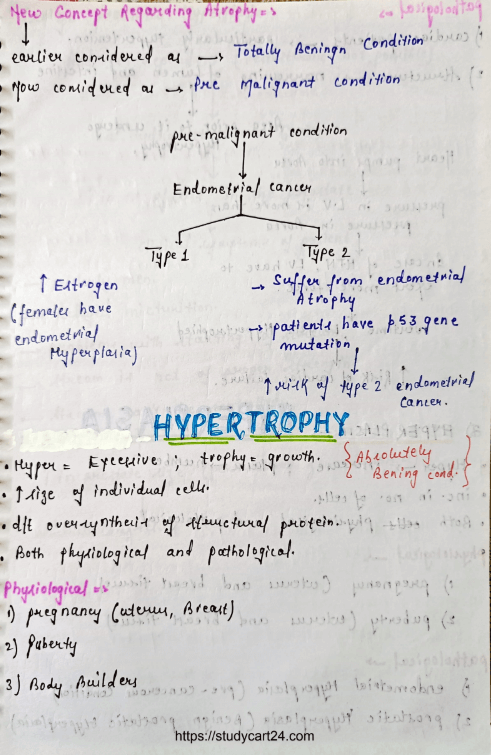 New Concept Regarding Atrophy =>
earlier considered as → Totally Beningn Condition
Now considered as → Pre Malignant condition
pre-malignant condition
Endometrial cancer
Type 1
Type 2
↑ Estrogen
(females have
endometrial
Hyperplasia)
→ Suffer from endometrial
Atrophy
→ patients have p53 gene
mutation
↑ risk of type 2 endometrial
Cancer.
HYPERTROPHY
• Hyper = Excessive ; trophy = growth.
{ Absolutely
Bening cond. }
• ↑ size of individual cells.
• d/t over synthesis of structural protein.
• Both physiological and pathological.
Physiological =>
1) pregnancy (uterus, Breast)
2) Puberty
3) Body Builders
https://studycart24.com